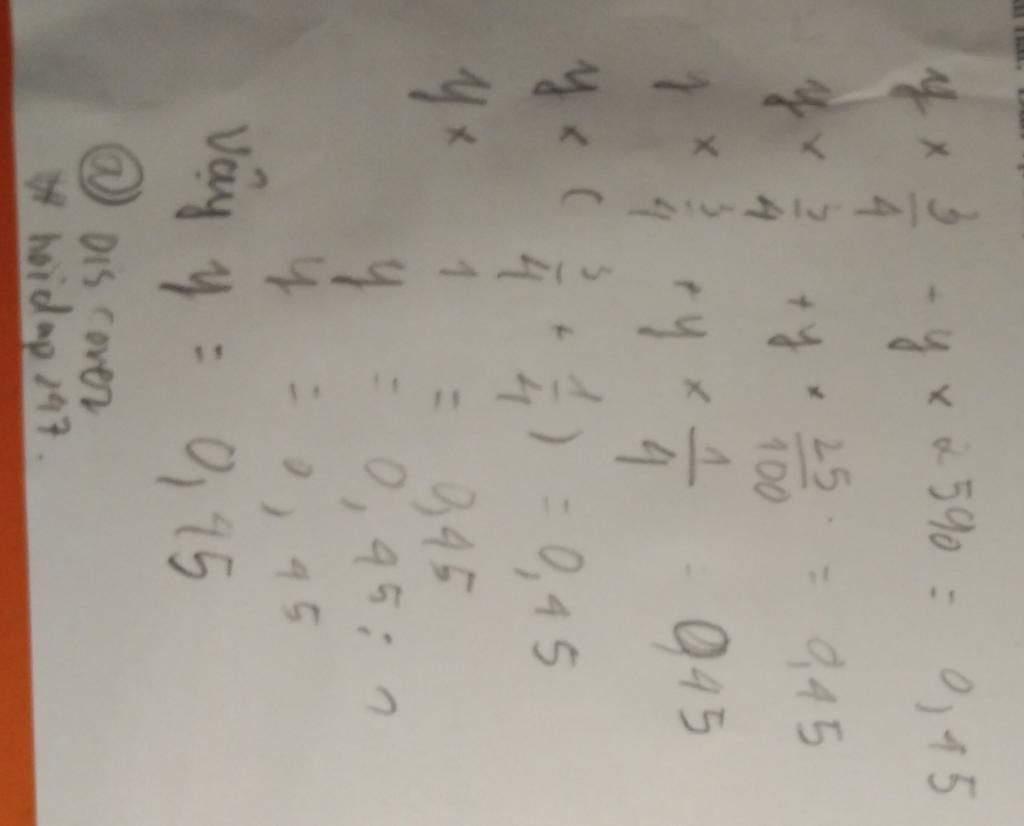 y × 3/4 + y × 25% = 0,15
y × 3/4 + y × 25/100 = 0,15
y × 3/4 + y × 1/4 = 0,15
y × ( 3/4 + 1/4 ) = 0,15
y × 1 = 0,15
y = 0,15 : 1
y = 0,15
Vậy y = 0,15
@ Discover
# hoidap247.